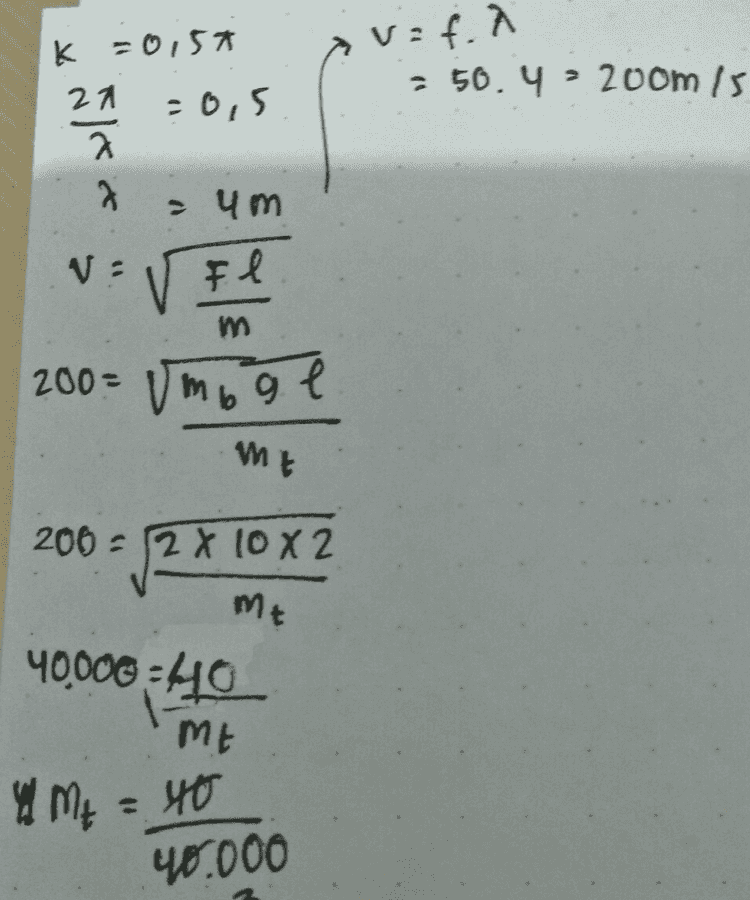 k = 0,5π
2π/λ = 0,5
λ = 4m
v = f. λ
= 50. 4 = 200m/s
v = √(F l/m)
200 = √(m_b g l/m_t)
200 = √(2 x 10 x 2/m_t)
40.000 = 40/m_t
m_t = 40/40.000